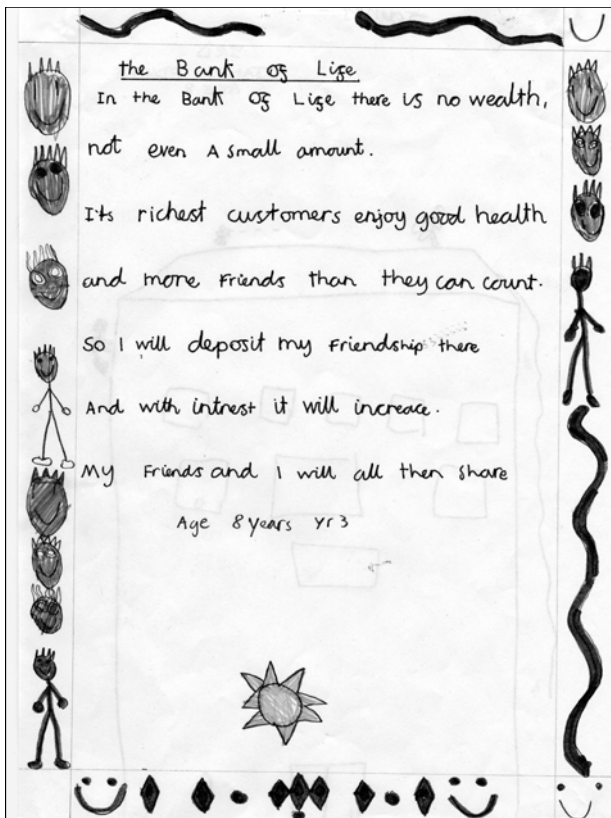 the Bank of Life
In the Bank of Life there is no wealth,
not even A small amount.
It's richest customers enjoy good health
and more Friends than they can count.
So I will deposit my Friendship there
And with intrest it will increace.
My Friends and I will all then share
Age 8 years yr 3